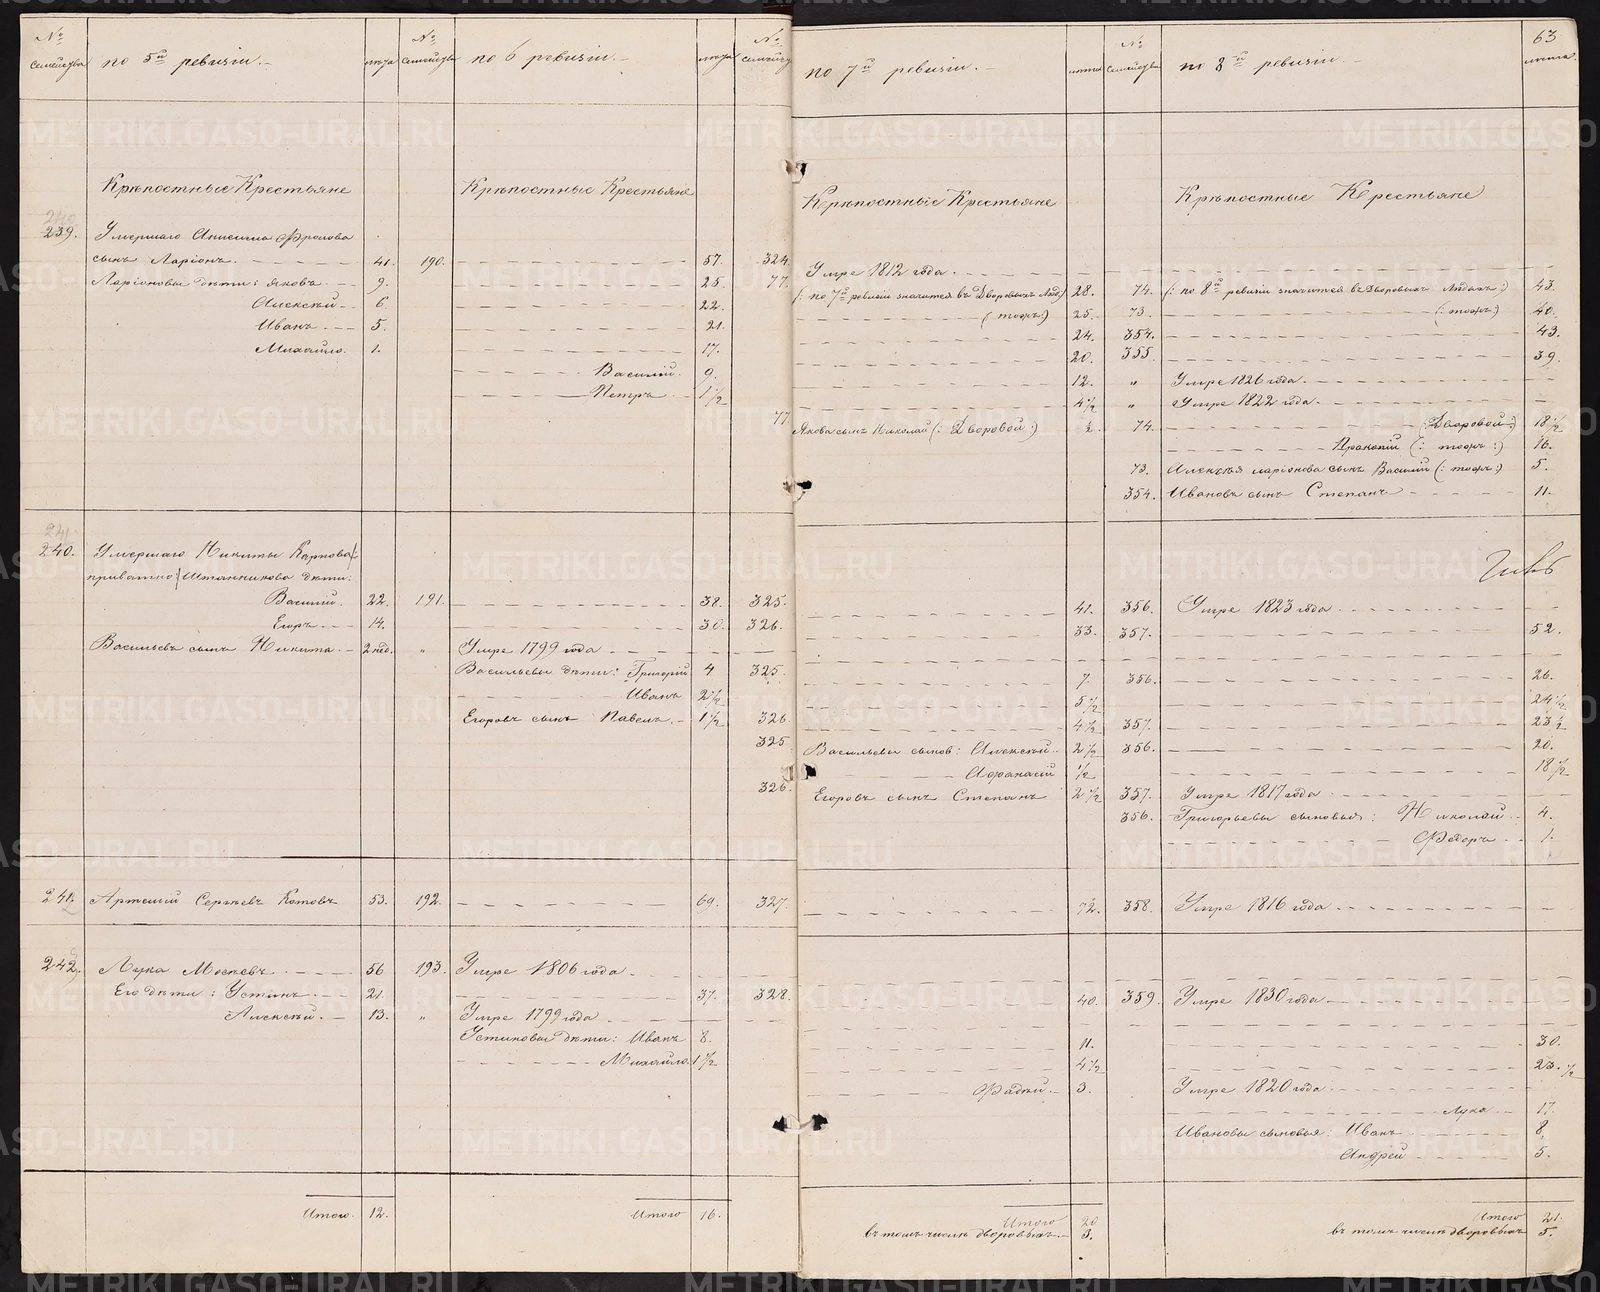 № семейства по 5й ревизіи. лѣта № семейства по 6 ревизіи. лѣта № семейству по 7й ревизіи. лѣта № семейства по 8й ревизіи 63 лѣта.
Крѣпостные Крестьяне Крѣпостные Крестьяне Крѣпостные Крестьяне Крѣпостные Крестьяне
240
239. Умершаго Анисима Фролова
сынъ Ларіонъ. 41. 190. 57. 324. Умре 1812 года.
Ларіоновы дѣти: Яковъ 9. 25. 77. (: по 7й ревизіи значится въ Дворовыхъ Люд:) 28. 74. (: по 8й ревизіи значится въ Дворовыхъ Людяхъ:) 43.
Алексѣй 6. 22. (тожъ:) 25. 73. (: тожъ:) 40.
Иванъ 5. 21. 24. 354. 43.
Михайло. 1. 17. 20. 355. 39.
Василій. 9. 12. " Умре 1826 года.
Петръ 1 1/2 4 1/2 " Умре 1822 года.
77. Якова сынъ Николай (: Дворовой:) 1/2 74. (Дворовой:) 18 1/2
Прокопій (: тожъ:) 16.
73. Алексѣя Ларіонова сынъ Василій (: тожъ:) 5.
354. Ивановъ сынъ Степанъ 11.
241
240. Умершаго Никиты Карпова /:
приватно/ Штанникова дѣти:
Василій. 22. 191. 38. 325. 41. 356. Умре 1823 года
Егоръ 14. 30. 326. 33. 357. 52.
Васильевъ сынъ Никита. 2 нед. " Умре 1799 года
Васильевы дѣти: Григорій 4 325. 7. 356. 26.
Иванъ 2 1/2 5 1/2 24 1/2
Егоровъ сынъ Павелъ. 1 1/2 326. 4 1/2 357. 23 1/2
325. Васильевы сынов: Алексѣй. 2 1/2 356. 20.
Афанасій 1/2 18 1/2
326. Егоровъ сынъ Степанъ 2 1/2 357. Умре 1817 года
356. Григорьевы сыновья: Николай 4.
Ѳедоръ 1.
241. Артемій Сергѣевъ Котовъ 53. 192. 69. 327. 72. 358. Умре 1816 года
242. Лука Мосѣевъ 56 193. Умре 1806 года.
Его дѣти: Устинъ 21. 37. 328. 40. 359. Умре 1830 года
Алексѣй. 13. " Умре 1799 года
Устиновы дѣти: Иванъ 8. 11. 30.
Михайло. 1 1/2 4 1/2 23. 1/2
Фадѣй. 3. Умре 1820 года
Лука 17.
Ивановы сыновья: Иванъ 8.
Андрей 5.
Итого. 12. Итого 16. Итого 20 Итого 21.
въ томъ числѣ дворовыхъ. 3. въ томъ числѣ дворовыхъ 5.
METRIKI.GASO-URAL.RU